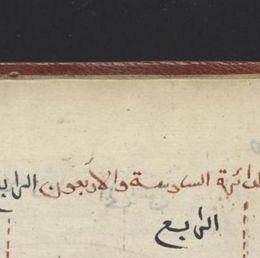 الدائرة السادسة والاربعون الرابع
الرابع